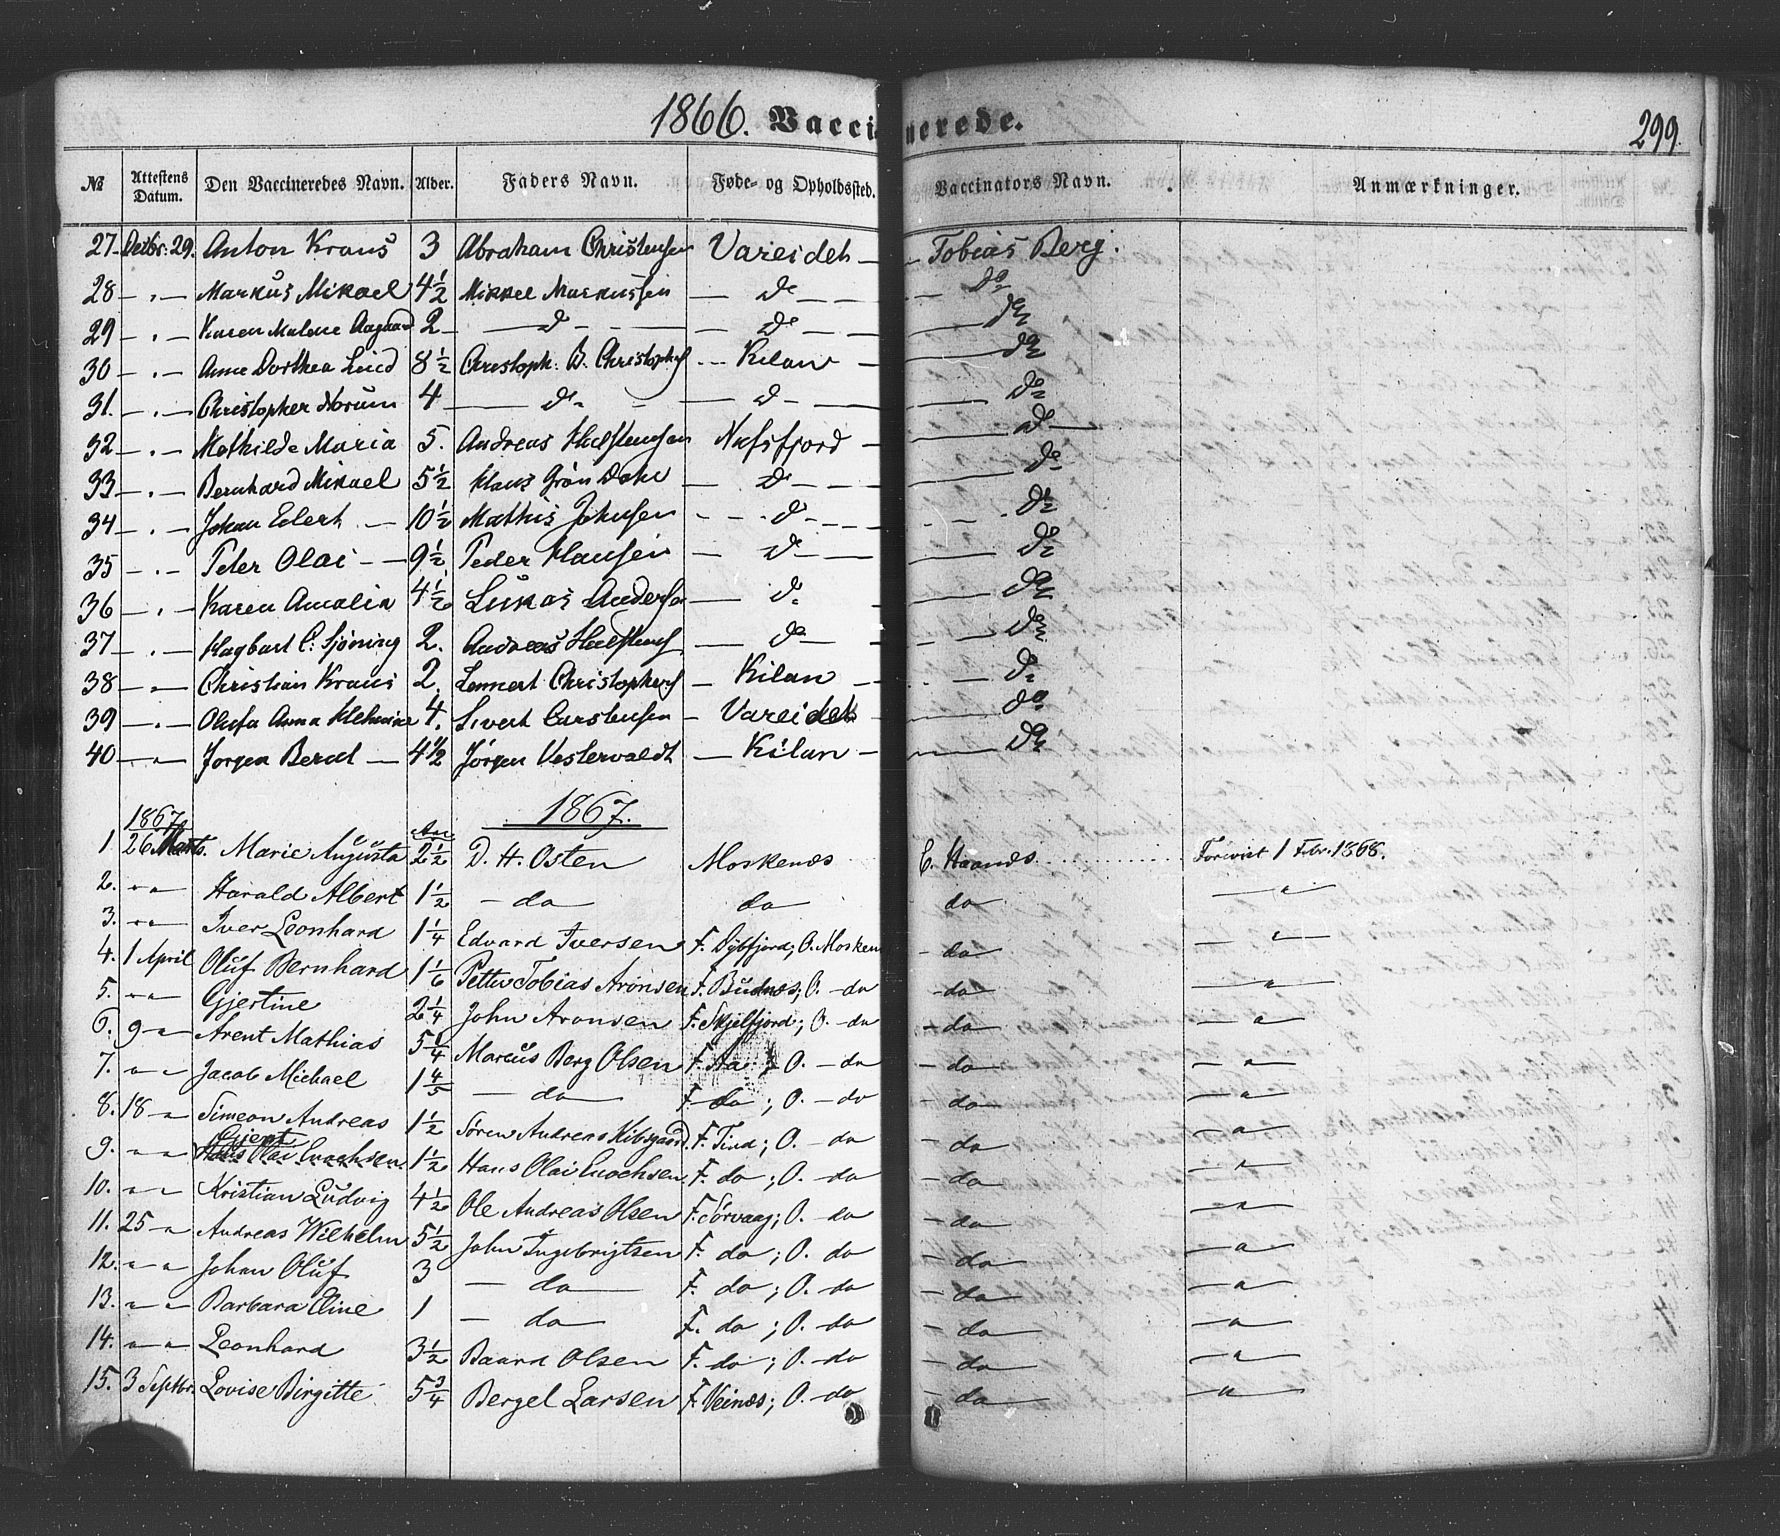 1866. Vaccinerede. 299.
№ Attestens Datum. Den Vaccineredes Navn. Alder. Faders Navn. Føde- og Opholdssted. Vaccinators Navn. Anmærkninger.
27. Decbr. 29. Anton Kraus 3 Abraham Christensen Vareidet — Tobias Berg.
28 — " — Markus Mikael 4½ Mikkel Markussen — do — — do
29 — " — Karen Malene Aagaard 2 — do — — do — — do
30 — " — Anne Dorthea Lind 8½ Christoph: B. Christophs — Kilan — — do
31. — " — Christopher Norum 4 — do — — do — — do
32 — " — Mathilde Maria 5. Andreas Halstensen Nufsfjord — — do —
33 — " — Bernhard Mikael 5½ Klaus Grön Dahl — do — — do
34 — " — Johan Edert — 10½ Mathis Johnsen — do — — do
35 — " — Peter Olai — 9½ Peder Hansen — do — — do
36 — " — Karen Amalia 4½ Lukas Anders — do — — do
37 — " — Hagbart C. Sjöning 2. Andreas Halstens — do — — do
38 — " — Christian Kraus 2. Lennert Christophers — Kilan — — do
39 — " — Olufa Anna Klemine 4. Sivert Carstensen — Vareidet — do
40 — " — Jørgen Berat — 4½ Jörgen Vestervaldt — Kilan — — do
1867.
1867
1. 26 Marts. Marie Augusta Aar 2½ D. H. Osten Moskenæs E. Haanæs Forevist 1 Febr. 1868.
2. " " Harald Albert 1½ — do — do — do — " —
3. " " Iver Leonhard 1¼ Edvard Iversen F. Dybfjord; O. Mosken — do — " —
4. 1 April Oluf Bernhard 1 1/6 Petter Tobias Aronsen F. Budnæs; O. — do — do — " —
5. " " Gjertine 2¼ John Aronsen F. Skjelfjord; O. — do — do — " —
6. 9 — " Arent Mathias 5¼ Marcus Berg Olsen F. Aa; O. — do — do — " —
7. " " Jacob Michael 1 4/5 — do — F. do; O. — do — do — " —
8. 18 — " Simeon Andreas 1½ Sören Andreas Kibsgaard F. Tind; O. — do — do — " —
9. " " Gjert Hans Olai Enochsen 1½ Hans Olai Enochsen F. do; O. — do — do — " —
10. " " Kristian Ludvig 4½ Ole Andreas Olsen F. Sörvaag; O. — do — do — " —
11. 25 — " Andreas Wilhelm 5½ John Ingebrigtsen F. do; O. do — do — " —
12. " " Johan Oluf 3 — do — F. do; O. do — do — " —
13. " " Barbara Eline 1 — do — F. do; O. do — do — " —
14. " " Leonhard 3½ Baard Olsen F. do; O. — do — do — " —
15. 3 Septbr. Lovise Birgitte 5¾ Bergel Larsen F. Veinæs; O. — do — do — " —